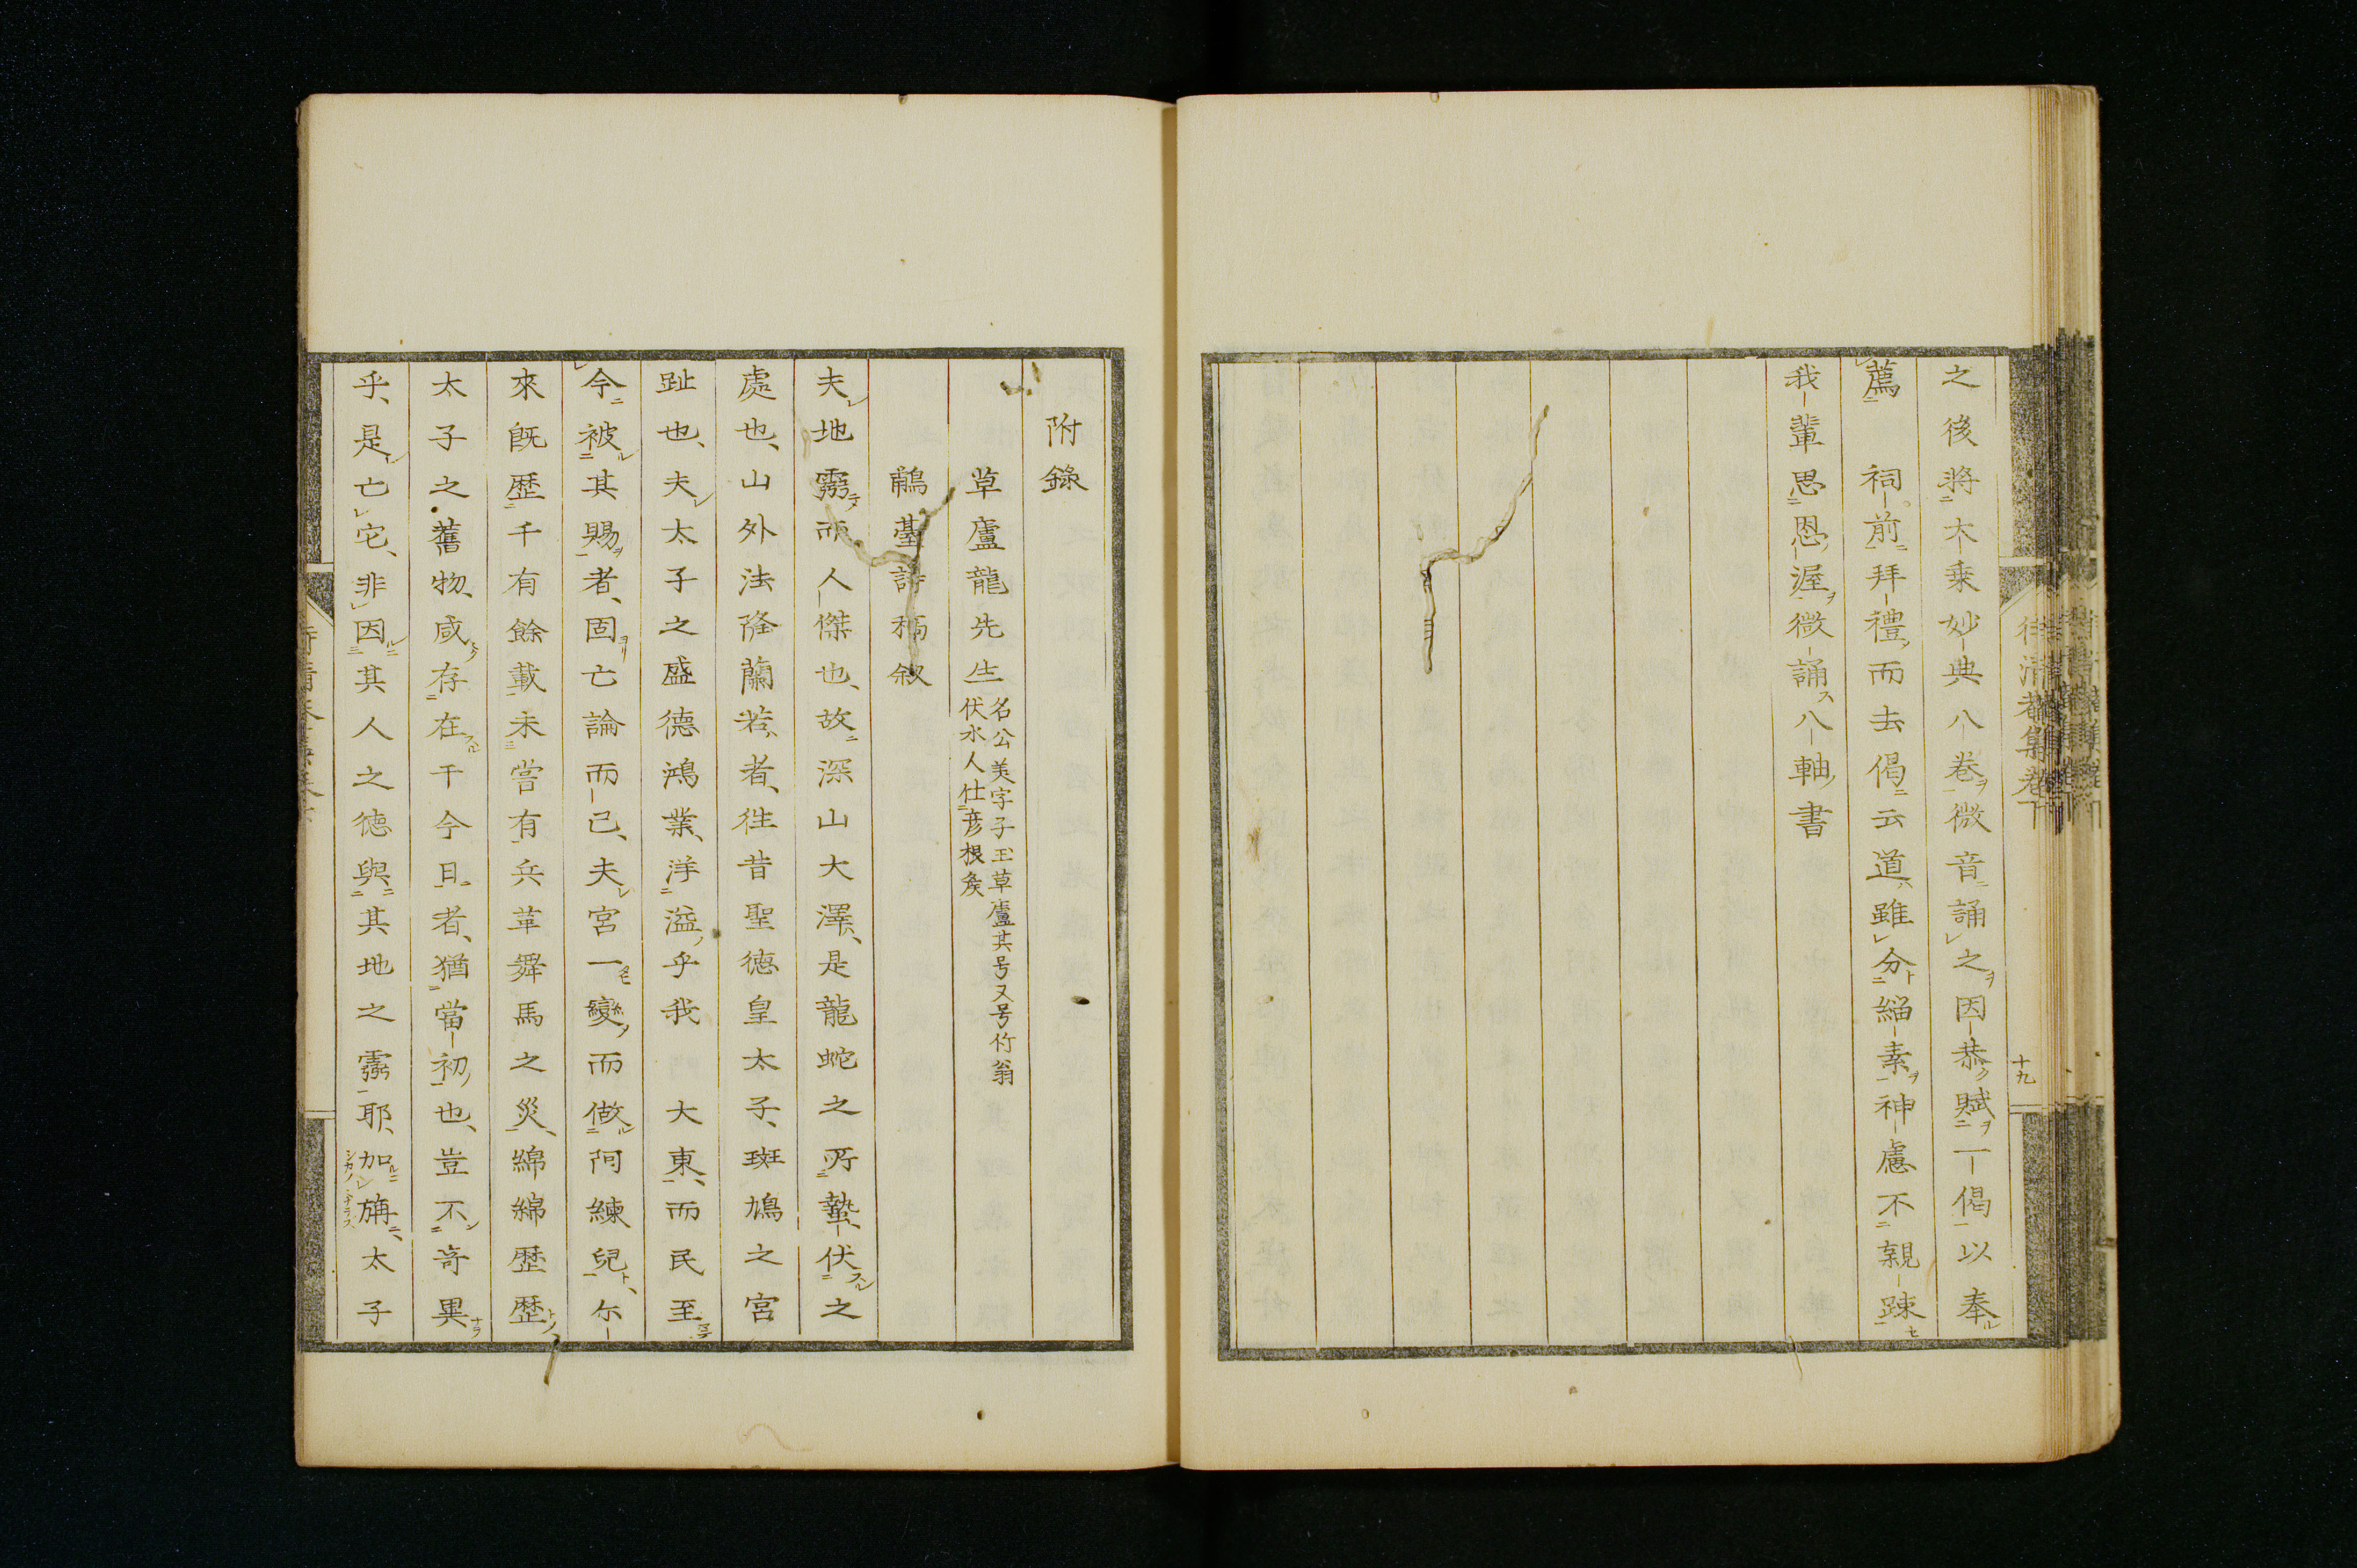 之後將大乗妙典八巻微音誦之因恭賦一偈以奉
薦 祠前拜禮而去偈云道雖分緇素神慮不親踈
我輩思恩渥微誦八軸書
十九
附錄
草廬龍先生
名公美字子玉草廬其号又号竹翁
伏水人仕彦根矦
鵤䑓詩稿叙
夫地霛而人傑也、故深山大澤、是龍蛇之所蟄伏之
處也、山外法隆蘭若者、徃昔聖徳皇太子、斑鳩之宮
趾也、夫太子之盛德鴻業、洋溢乎我 大東、而民至
今被其賜者、固亡論而已、夫宮一變而做阿練兒、尓
來既歴千有餘載未嘗有兵革舞馬之災、綿綿歴歴
太子之舊物、咸存在于今日者、猶當初也、豈不竒異
乎、是亡它、非因其人之徳與其地之霛耶、加旃、太子